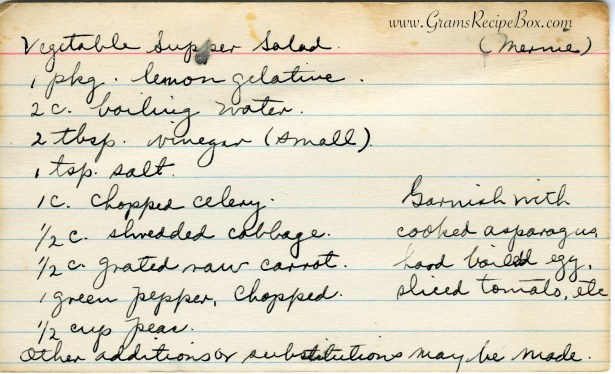 www.GramsRecipeBox.com
Vegetable Supper Salad. (Mernie)
1 pkg. lemon gelatine.
2 c. boiling water.
2 tbsp. vinegar (small).
1 tsp. salt.
1 c. chopped celery.
1/2 c. shredded cabbage.
1/2 c. grated raw carrot.
1 green pepper, chopped.
1/2 cup peas.
Garnish with
cooked asparagus
hard boiled egg,
sliced tomato, etc
Other additions or substitutions may be made.